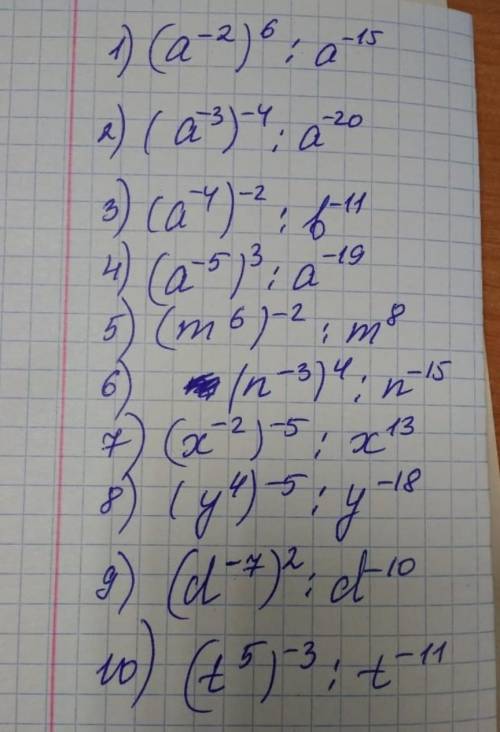 1) (a⁻²)⁶ : a⁻¹⁵
2) (a⁻³)⁻⁴ : a⁻²⁰
3) (a⁻⁴)⁻² : b⁻¹¹
4) (a⁻⁵)³ : a⁻¹⁹
5) (m⁶)⁻² : m⁸
6) (n⁻³)⁴ : n⁻¹⁵
7) (x⁻²)⁻⁵ : x¹³
8) (y⁴)⁻⁵ : y⁻¹⁸
9) (d⁻⁷)² : d⁻¹⁰
10) (t⁵)⁻³ : t⁻¹¹